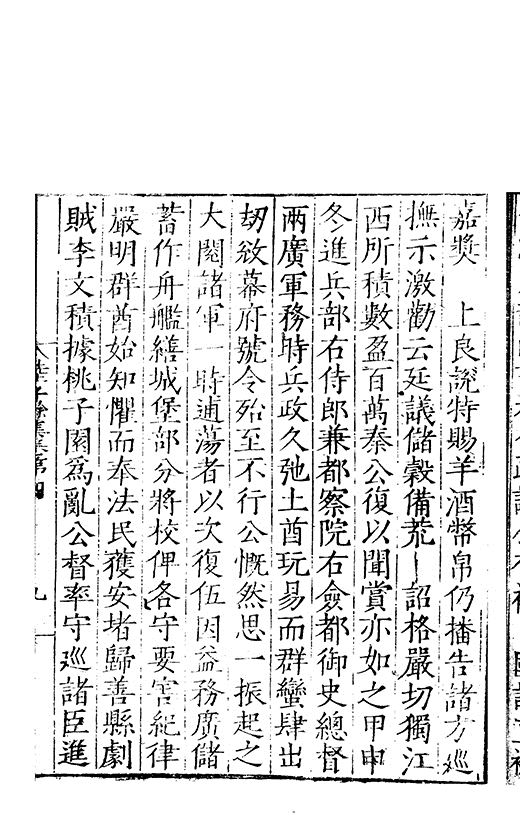 嘉獎　上良說特賜羊酒幣帛仍播告諸方巡
撫示激勸云廷議儲穀備荒　詔格嚴切獨江
西所積數盈百萬秦公復以聞賞亦如之甲申
冬進兵部右侍郎兼都察院右僉都御史總督
兩廣軍務時兵政久弛土酋玩易而群蠻肆出
刼敓幕府號令殆至不行公慨然思一振起之
大閱諸軍一時逋蕩者以次復伍因益務廣儲
蓄作舟艦繕城堡部分將校俾各守要害紀律
嚴明群酋始知懼而奉法民獲安堵歸善縣劇
賊李文積據桃子園爲亂公督率守廵諸臣進
集第四
九